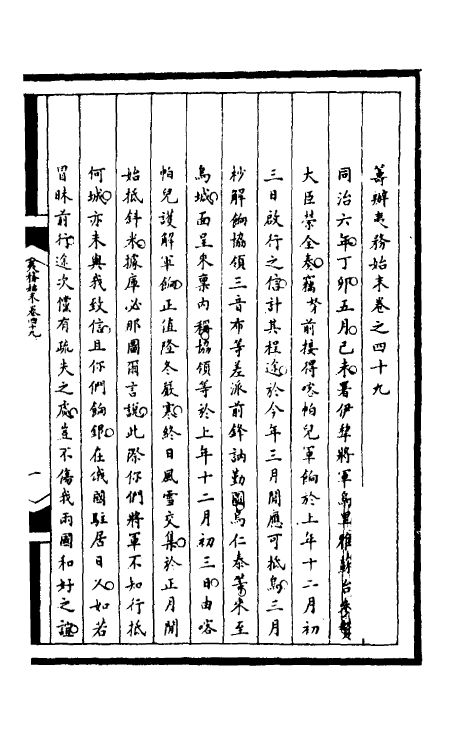 籌辦夷務始末卷之四十九
同治六年丁卯五月己未署伊犂將軍烏里雅蘇台參贊
大臣榮全奏竊等前接得喀帕兒軍餉於上年十二月初
三日啟行之信計其程途於今年三月間應可抵烏三月
杪解餉協領三音布等差派前鋒訥勤圖烏仁泰等來至
烏城面呈來稟內稱協領等於上年十二月初三日由喀
帕兒護解軍餉正值隆冬嚴寒終日風雪交集於正月間
始抵斜米據庫必那圖爾言說此際你們將軍不知行抵
何城亦未與我致信且你們餉銀在俄國駐居日久如若
冒昧前行途次儻有疏失之處豈不傷我兩國和好之誼
夷務始末卷四十九
一